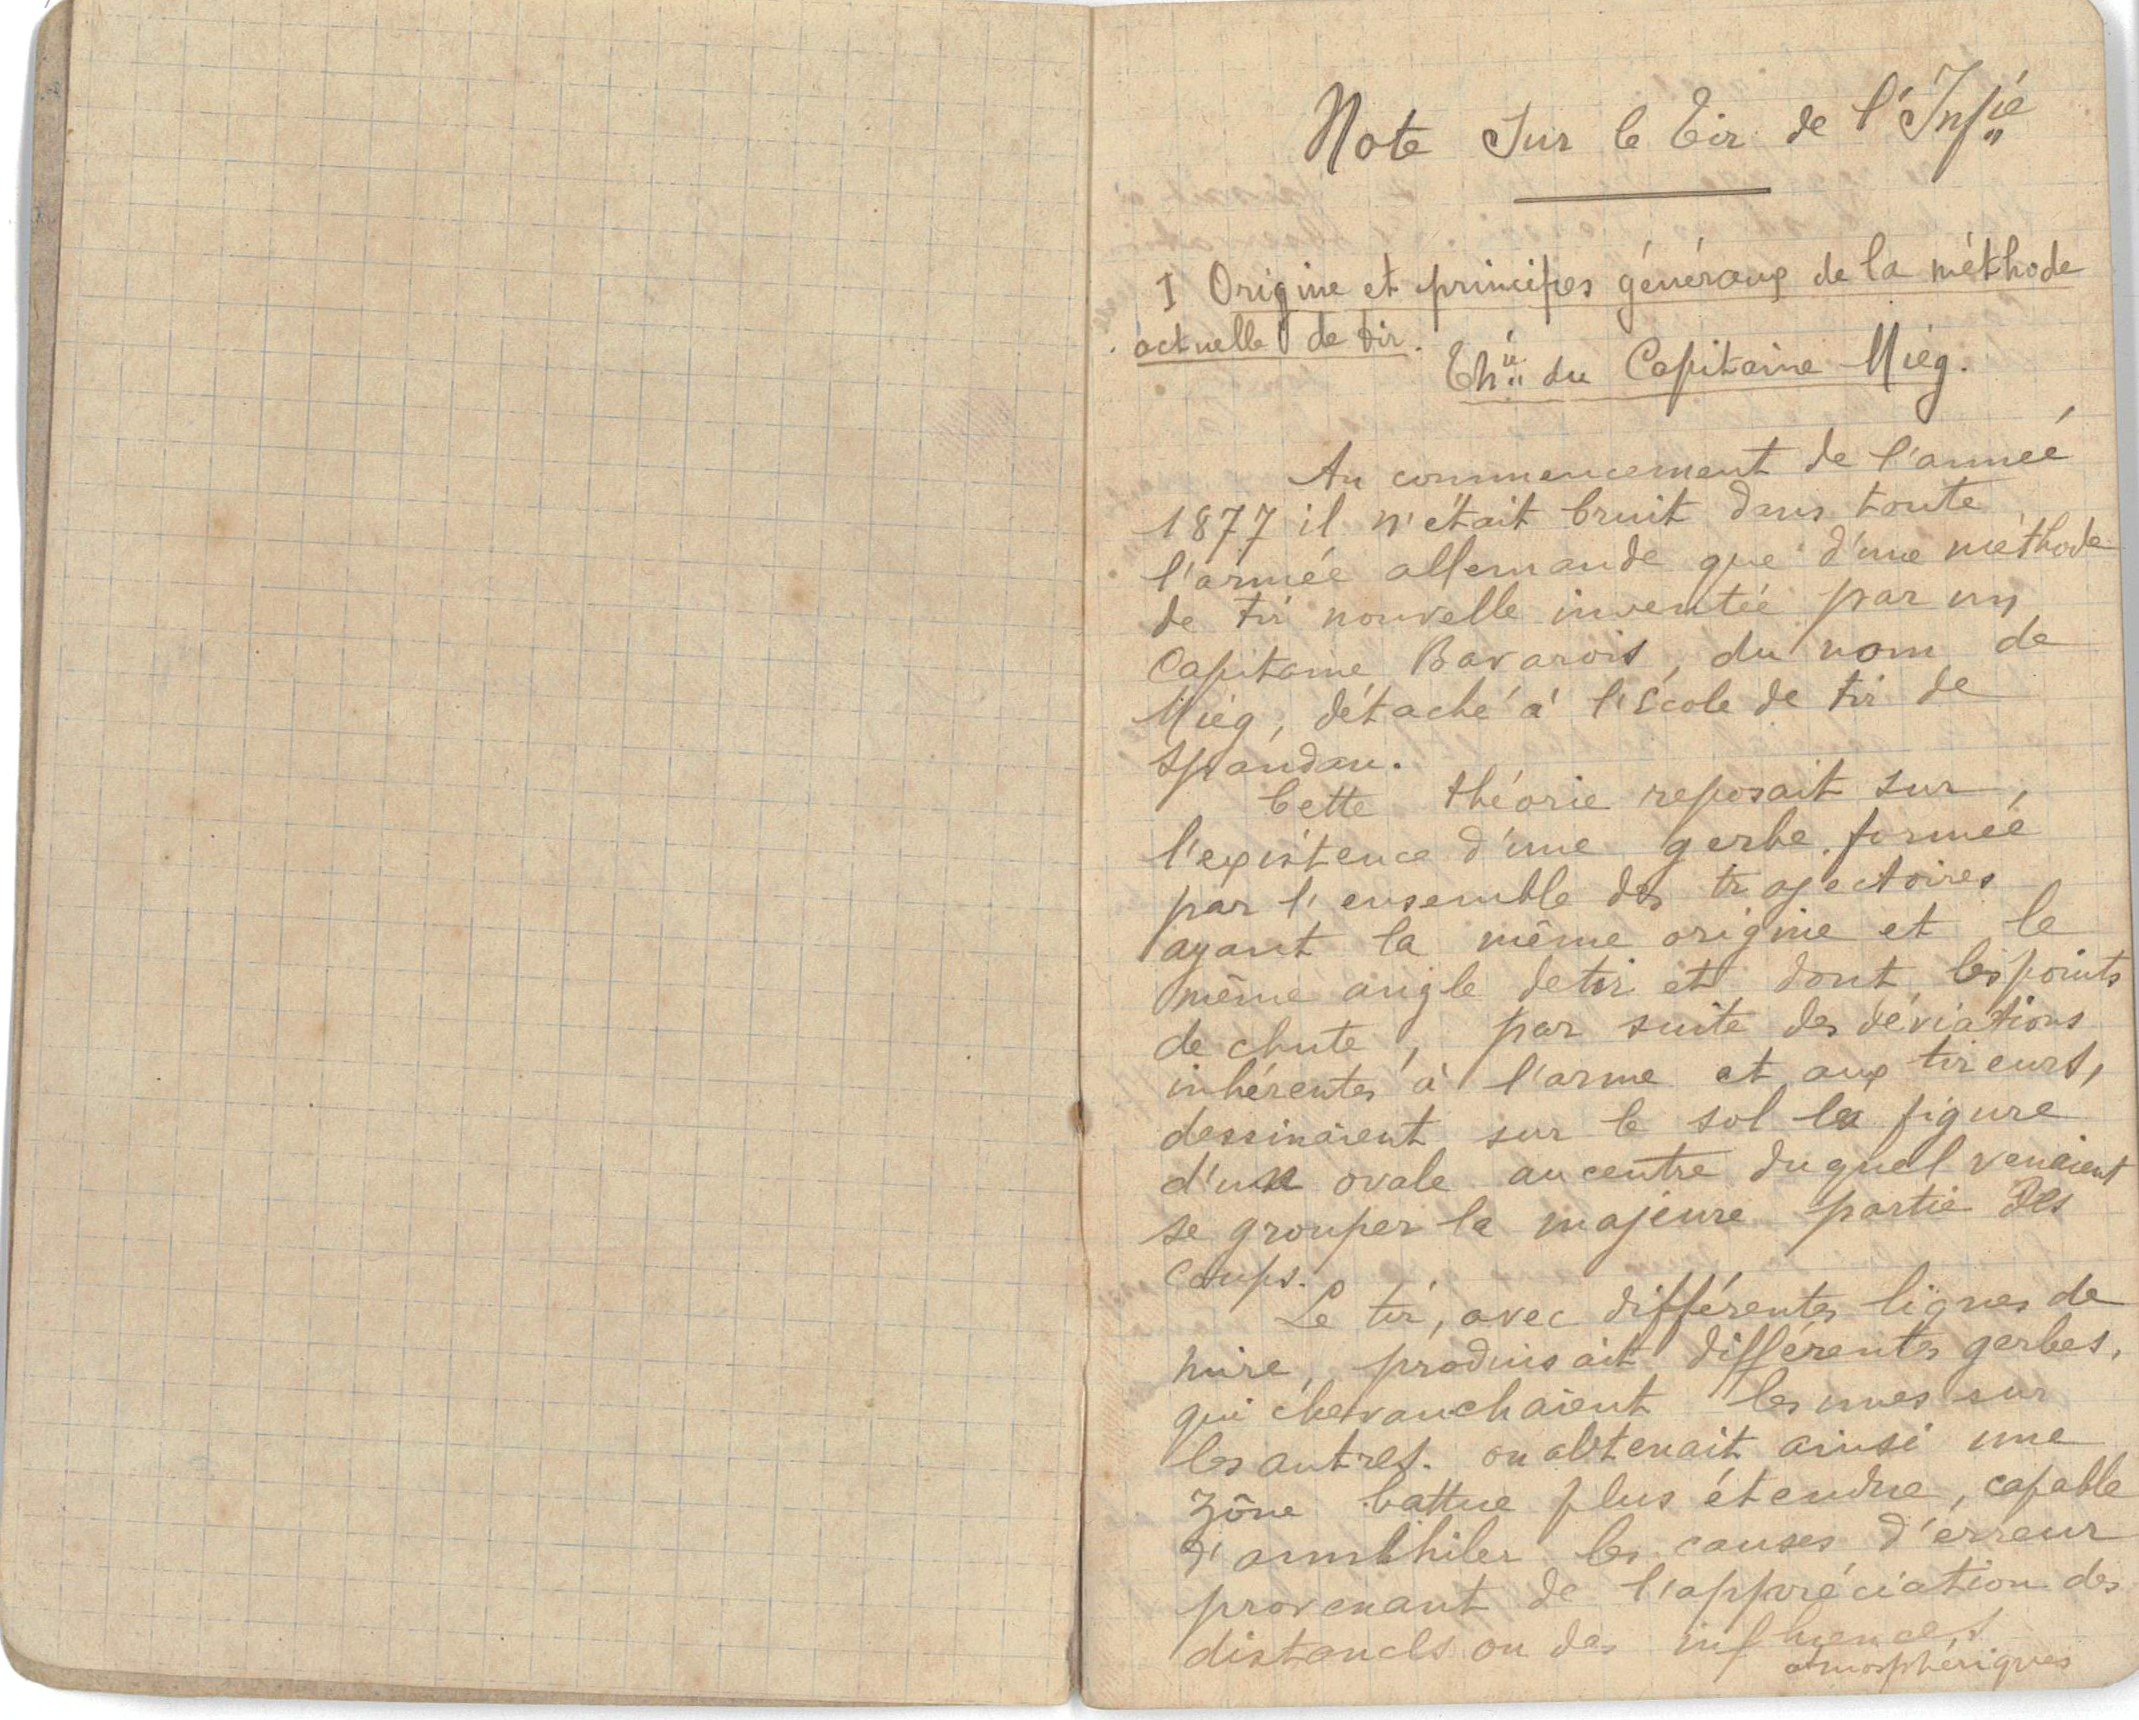 Note Sur le Tir de l'Infie
I Origine et principes généraux de la méthode
actuelle de tir.
Thie du Capitaine Mieg.
Au commencement de l'année
1877 il n'était bruit dans toute
l'armée allemande que d'une méthode
de tir nouvelle inventée par un
Capitaine Bavarois, du nom de
Mieg, détaché à l'École de tir de
Spandau.
Cette théorie reposait sur
l'existence d'une gerbe formée
par l'ensemble des trajectoires
ayant la même origine et le
même angle de tir et dont les points
de chute, par suite des déviations
inhérentes à l'arme et aux tireurs,
dessinaient sur le sol la figure
d'un ovale au centre duquel venaient
se grouper la majeure partie des
coups.
Le tir, avec différentes lignes de
mire, produisait différentes gerbes,
qui chevauchaient les unes sur
les autres. on obtenait ainsi une
zône battue plus étendue, capable
d'annihiler les causes d'erreur
provenant de l'appréciation des
distances ou des influences
atmosphériques